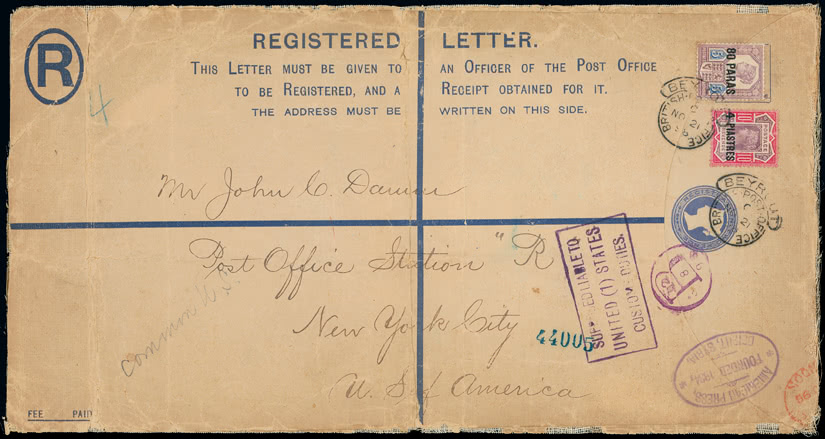 R
REGISTERED LETTER.
THIS LETTER MUST BE GIVEN TO AN OFFICER OF THE POST OFFICE
TO BE REGISTERED, AND A RECEIPT OBTAINED FOR IT.
THE ADDRESS MUST BE WRITTEN ON THIS SIDE.
4
80 PARAS
4 PIASTRES
POSTAGE
BEYROUT
BRITISH POST OFFICE
NO 21
BEYROUT
BRITISH POST OFFICE
Mr John C.
Post Office Station "R
New York City
U. S of America
SUPPOSED LIABLE TO
UNITED (1) STATES
CUSTOMS DUTIES.
44005
AMERICAN PRESS,
BEIRUT, SYRIA
FOUNDED
FEE PAID